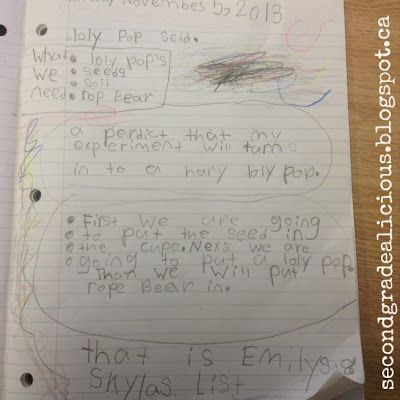 November 5, 2013
loly Pop Seid.
What loly pop's
we seeds
need soil
rop Bear
a perdict that my
experiment will turne
in to a hary loly pop.
First we are going
to put the seed in
the cupe. Nexs we are
going to put a loly pop.
Than we will put
rope Bear in.
that is Emilys &
Skylas List
secondgradealicious.blogspot.ca